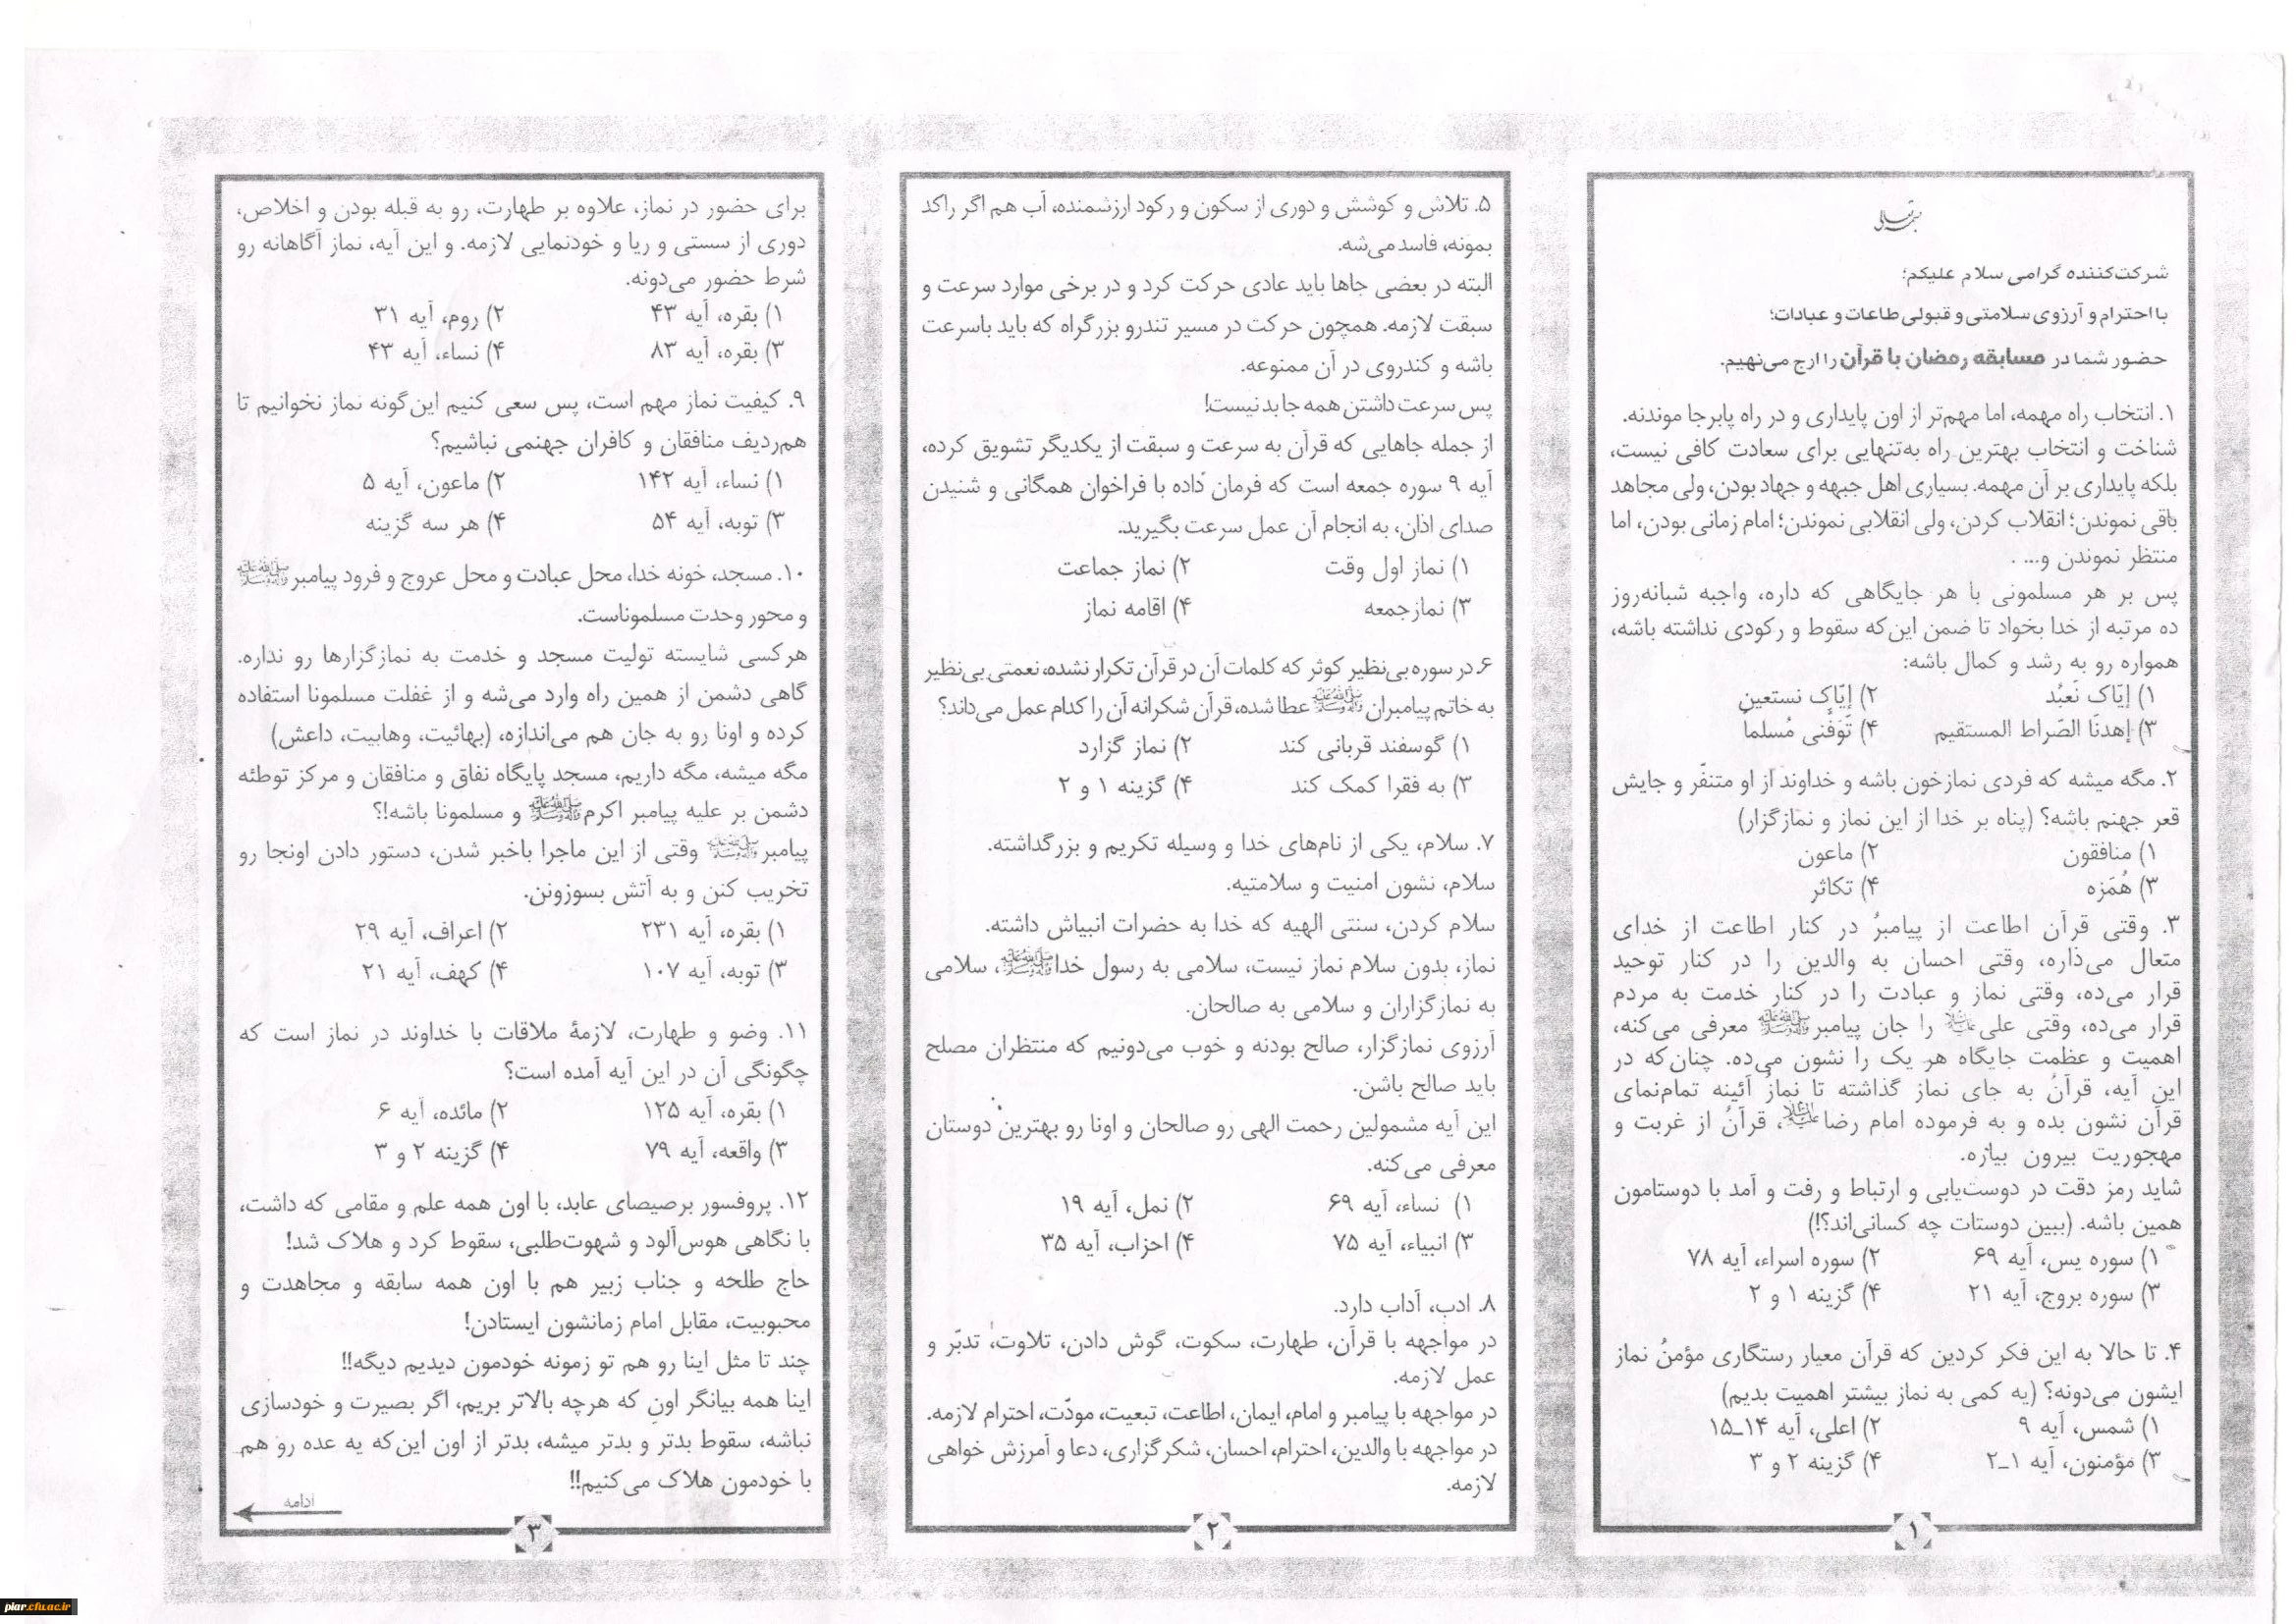 بسمه تعالی
شرکت‌کننده گرامی سلام علیکم؛
با احترام و آرزوی سلامتی و قبولی طاعات و عبادات؛
حضور شما در مسابقه رمضان با قرآن را ارج می‌نهیم.
۱. انتخاب راه مهمه، اما مهم‌تر از اون پایداری و در راه پابرجا موندنه.
شناخت و انتخاب بهترین راه به‌تنهایی برای سعادت کافی نیست،
بلکه پایداری بر آن مهمه. بسیاری اهل جبهه و جهاد بودن، ولی مجاهد
باقی نموندن؛ انقلاب کردن، ولی انقلابی نموندن؛ امام زمانی بودن، اما
منتظر نموندن و... .
پس بر هر مسلمونی با هر جایگاهی که داره، واجبه شبانه‌روز
ده مرتبه از خدا بخواد تا ضمن این‌که سقوط و رکودی نداشته باشه،
همواره رو به رشد و کمال باشه:
۱) إیّاک نَعبُد ۲) إیّاک نستعین
۳) إهدنَا الصّراط المستقیم ۴) تَوَفّنی مُسلماً
۲. مگه میشه که فردی نمازخون باشه و خداوند از او متنفّر و جایش
قعر جهنم باشه؟ (پناه بر خدا از این نماز و نمازگزار)
۱) منافقون ۲) ماعون
۳) هُمَزه ۴) تکاثر
۳. وقتی قرآن اطاعت از پیامبرُ در کنار اطاعت از خدای
متعال می‌ذاره، وقتی احسان به والدین را در کنار توحید
قرار می‌ده، وقتی نماز و عبادت را در کنار خدمت به مردم
قرار می‌ده، وقتی علی علیه‌السلام را جان پیامبر ﷺ معرفی می‌کنه،
اهمیت و عظمت جایگاه هر یک را نشون می‌ده. چنان‌که در
این آیه، قرآنُ به جای نماز گذاشته تا نمازُ آئینه تمام‌نمای
قرآن نشون بده و به فرموده امام رضا علیه‌السلام، قرآنُ از غربت و
مهجوریت بیرون بیاره.
شاید رمز دقت در دوست‌یابی و ارتباط و رفت و آمد با دوستامون
همین باشه. (ببین دوستات چه کسانی‌اند؟!)
۱) سوره یس، آیه ۶۹ ۲) سوره اسراء، آیه ۷۸
۳) سوره بروج، آیه ۲۱ ۴) گزینه ۱ و ۲
۴. تا حالا به این فکر کردین که قرآن معیار رستگاری مؤمنُ نماز
ایشون می‌دونه؟ (یه کمی به نماز بیشتر اهمیت بدیم)
۱) شمس، آیه ۹ ۲) اعلی، آیه ۱۴ـ۱۵
۳) مؤمنون، آیه ۱ـ۲ ۴) گزینه ۲ و ۳
۱
۵. تلاش و کوشش و دوری از سکون و رکود ارزشمنده، آب هم اگر راکد
بمونه، فاسد می‌شه.
البته در بعضی جاها باید عادی حرکت کرد و در برخی موارد سرعت و
سبقت لازمه. همچون حرکت در مسیر تندرو بزرگراه که باید باسرعت
باشه و کندروی در آن ممنوعه.
پس سرعت داشتن همه جا بد نیست!
از جمله جاهایی که قرآن به سرعت و سبقت از یکدیگر تشویق کرده،
آیه ۹ سوره جمعه است که فرمان داده با فراخوان همگانی و شنیدن
صدای اذان، به انجام آن عمل سرعت بگیرید.
۱) نماز اول وقت ۲) نماز جماعت
۳) نمازجمعه ۴) اقامه نماز
۶. در سوره بی‌نظیر کوثر که کلمات آن در قرآن تکرار نشده، نعمتی بی‌نظیر
به خاتم پیامبران ﷺ عطا شده، قرآن شکرانه آن را کدام عمل می‌داند؟
۱) گوسفند قربانی کند ۲) نماز گزارد
۳) به فقرا کمک کند ۴) گزینه ۱ و ۲
۷. سلام، یکی از نام‌های خدا و وسیله تکریم و بزرگداشته.
سلام، نشون امنیت و سلامتیه.
سلام کردن، سنتی الهیه که خدا به حضرات انبیاش داشته.
نماز، بدون سلام نماز نیست، سلامی به رسول خدا ﷺ، سلامی
به نمازگزاران و سلامی به صالحان.
آرزوی نمازگزار، صالح بودنه و خوب می‌دونیم که منتظران مصلح
باید صالح باشن.
این آیه مشمولین رحمت الهی رو صالحان و اونا رو بهترین دوستان
معرفی می‌کنه.
۱) نساء، آیه ۶۹ ۲) نمل، آیه ۱۹
۳) انبیاء، آیه ۷۵ ۴) احزاب، آیه ۳۵
۸. ادب، آداب دارد.
در مواجهه با قرآن، طهارت، سکوت، گوش دادن، تلاوت، تدبّر و
عمل لازمه.
در مواجهه با پیامبر و امام، ایمان، اطاعت، تبعیت، مودّت، احترام لازمه.
در مواجهه با والدین، احترام، احسان، شکرگزاری، دعا و آمرزش خواهی
لازمه.
۲
برای حضور در نماز، علاوه بر طهارت، رو به قبله بودن و اخلاص،
دوری از سستی و ریا و خودنمایی لازمه. و این آیه، نماز آگاهانه رو
شرط حضور می‌دونه.
۱) بقره، آیه ۴۳ ۲) روم، آیه ۳۱
۳) بقره، آیه ۸۳ ۴) نساء، آیه ۴۳
۹. کیفیت نماز مهم است، پس سعی کنیم این‌گونه نماز نخوانیم تا
هم‌ردیف منافقان و کافران جهنمی نباشیم؟
۱) نساء، آیه ۱۴۲ ۲) ماعون، آیه ۵
۳) توبه، آیه ۵۴ ۴) هر سه گزینه
۱۰. مسجد، خونه خدا، محل عبادت و محل عروج و فرود پیامبر ﷺ
و محور وحدت مسلموناست.
هرکسی شایسته تولیت مسجد و خدمت به نمازگزارها رو نداره.
گاهی دشمن از همین راه وارد می‌شه و از غفلت مسلمونا استفاده
کرده و اونا رو به جان هم می‌اندازه، (بهائیت، وهابیت، داعش)
مگه میشه، مگه داریم، مسجد پایگاه نفاق و منافقان و مرکز توطئه
دشمن بر علیه پیامبر اکرم ﷺ و مسلمونا باشه!؟
پیامبر ﷺ وقتی از این ماجرا باخبر شدن، دستور دادن اونجا رو
تخریب کنن و به آتش بسوزونن.
۱) بقره، آیه ۲۳۱ ۲) اعراف، آیه ۲۹
۳) توبه، آیه ۱۰۷ ۴) کهف، آیه ۲۱
۱۱. وضو و طهارت، لازمهٔ ملاقات با خداوند در نماز است که
چگونگی آن در این آیه آمده است؟
۱) بقره، آیه ۱۲۵ ۲) مائده، آیه ۶
۳) واقعه، آیه ۷۹ ۴) گزینه ۲ و ۳
۱۲. پروفسور برصیصای عابد، با اون همه علم و مقامی که داشت،
با نگاهی هوس‌آلود و شهوت‌طلبی، سقوط کرد و هلاک شد!
حاج طلحه و جناب زبیر هم با اون همه سابقه و مجاهدت و
محبوبیت، مقابل امام زمانشون ایستادن!
چند تا مثل اینا رو هم تو زمونه خودمون دیدیم دیگه!!
اینا همه بیانگر اونِ که هرچه بالاتر بریم، اگر بصیرت و خودسازی
نباشه، سقوط بدتر و بدتر میشه، بدتر از اون این‌که یه عده رو هم
با خودمون هلاک می‌کنیم!!
ادامه
۳
piar.cfu.ac.ir